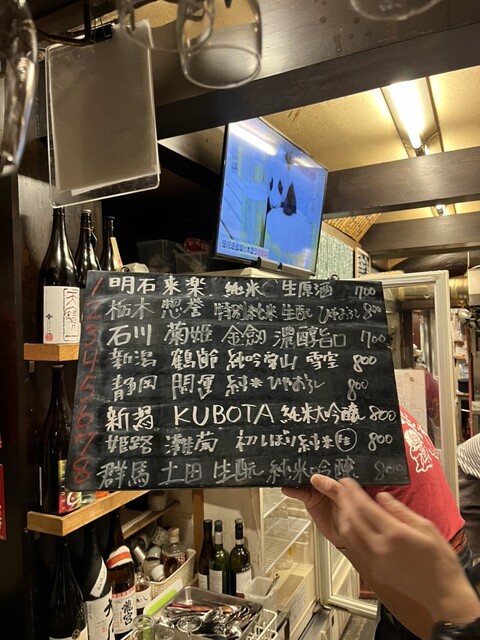 1 明石 来楽 純米 生原酒 700
2 栃木 惣誉 特別純米 生酛 ひやおろし 800
3 石川 菊姫 金劔 濃醇旨口 700
4 新潟 鶴齢 純吟 雪室 800
5 静岡 開運 純米 ひやおろし 800
6 新潟 KUBOTA 純米大吟醸 800
7 姫路 灘菊 初しぼり純米 生 800
8 群馬 土田 生酛 純米吟醸 800